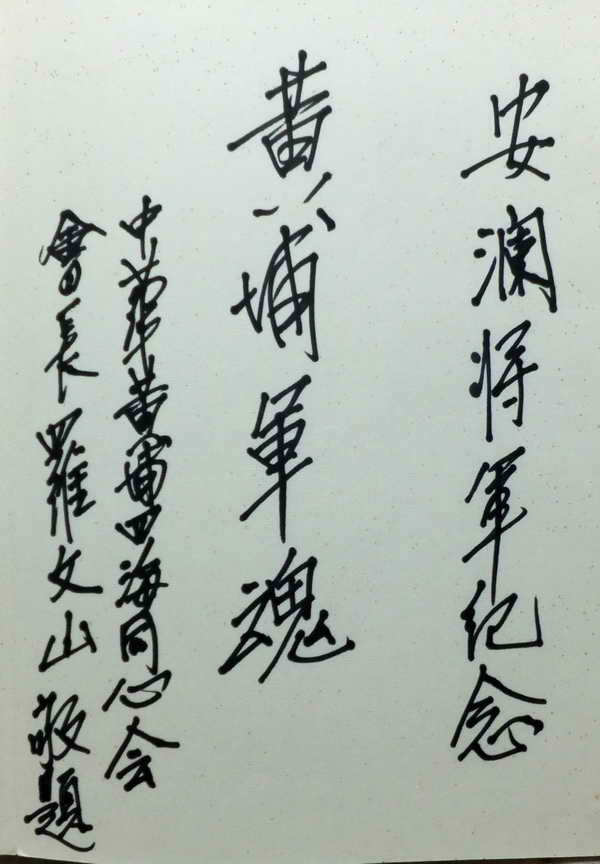 安瀾将軍纪念
黄埔軍魂
中華黄埔四海同心会
會長羅文山敬題